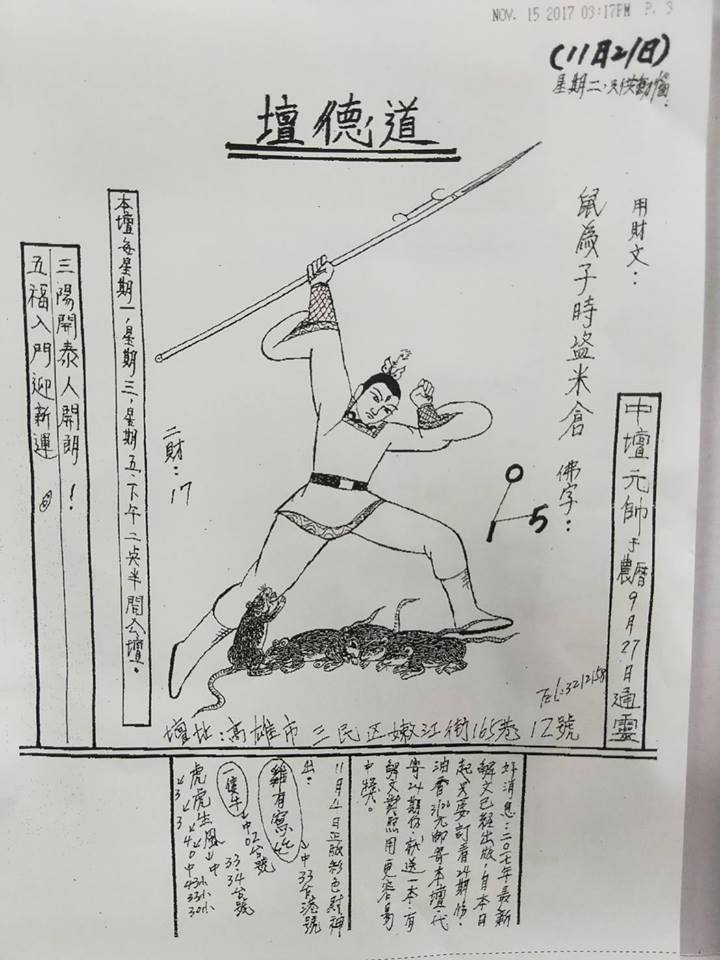 NOV. 15 2017 03:17PM P. 3
(11月21日)
星期二
壇德道
用財文：
鼠為子時盜米倉
佛字：
0
1 5
中壇元帥于農曆9月27日通靈
二財：17
本壇每星期一．星期三．星期五．下午二点半開公壇。
三陽開泰人開朗！
五福入門迎新運。
Tel:3212158
壇址：高雄市三民区嫩江街165巷12號
好消息：二〇一七年最新
解文已經出版，自本日
起只要訂看24期份，
油香3100元郵寄本壇，代
等24期份，就送一本，有
解文對照用更容易
中獎。
11月4日正版彩色財神
出：
雞有寫
中33台港號
一隻牛
中02台號
33.34台號
虎虎生風
中
43
33
30